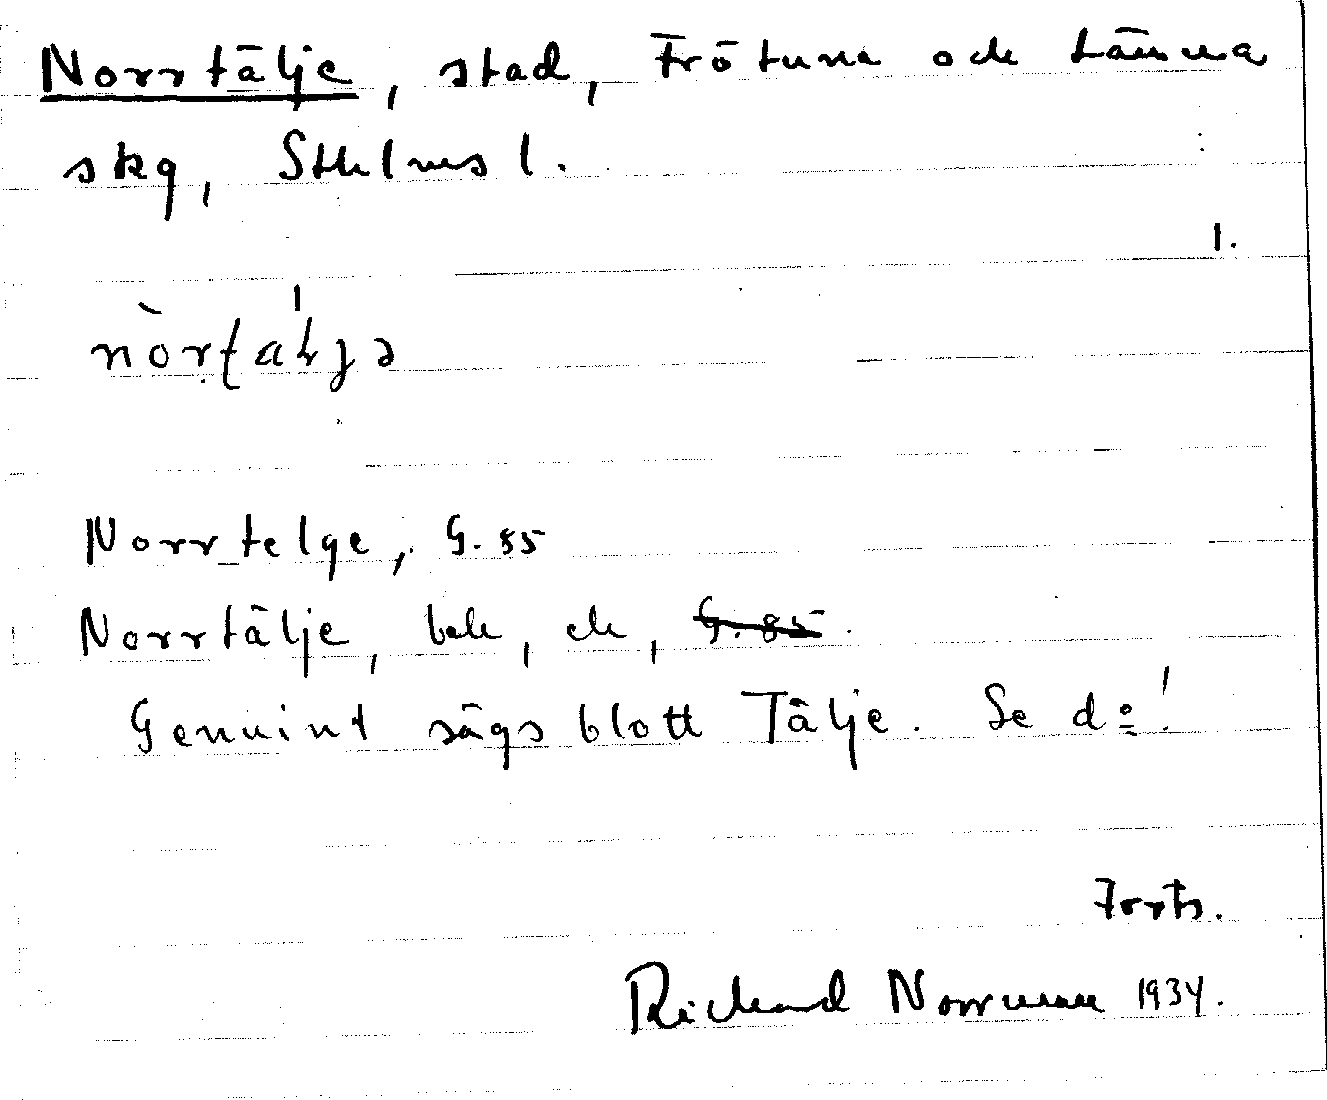 Norrtälje, stad, Frötuna och Länna
skg, Sthlms l.
1.
Norrtelge, G. 85
Norrtälje, bok, ek, G. 85.
Genuint sägs blott Tälje. Se d:o!
Forts.
Richard Norrman 1934.